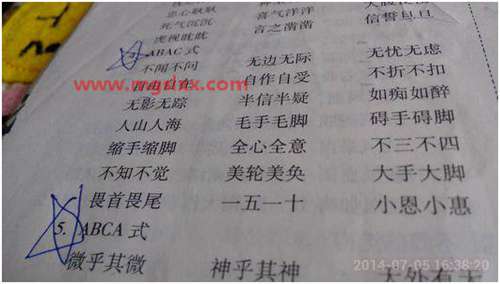 忠心耿耿 喜气洋洋
死气沉沉 言之凿凿 信誓旦旦
虎视眈眈
ABAC 式
不闻不问 无边无际 无忧无虑
自由自在 自作自受 不折不扣
www.mgzhx.com
无影无踪 半信半疑 如痴如醉
人山人海 毛手毛脚 碍手碍脚
缩手缩脚 全心全意 不三不四
不知不觉 美轮美奂 大手大脚
畏首畏尾 一五一十 小恩小惠
5. ABCA 式
微乎其微 神乎其神 天外有天
2014-07-05 16:38:20